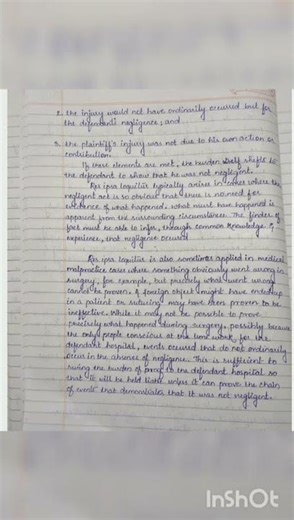 2. the injury would not have ordinarily occurred but for
the defendant's negligence; and
3. the plaintiff's injury was not due to his own action or
contribution.
If these elements are met, the burden shifts to
the defendant to show that he was not negligent.
Res ipsa loquitur typically arises in cases where the
negligent act is so obvious that there is no need for
evidence of what happened. what must have happened is
apparent from the surrounding circumstances. The finder of
fact must be able to infer, through common knowledge &
experience, that negligence occured
Res ipsa loquitur is also sometimes applied in medical
malpractice cases where something obviously went wrong in
surgery, for example, but precisely what went wrong
cannot be proven. A foreign object might have ended up
in a patient or suturing may have been proven to be
ineffective. While it may not be possible to prove
precisely what happened during surgery, possibly because
the only people conscious at the time work for the
defendant hospital, events occured that do not ordinarily
occur in the absence of negligence. This is sufficient to
swing the burden of proof to the defendant hospital so
that it will be held liable unless it can prove the chain
of events that demonstrates that it was not negligent.
InShOt